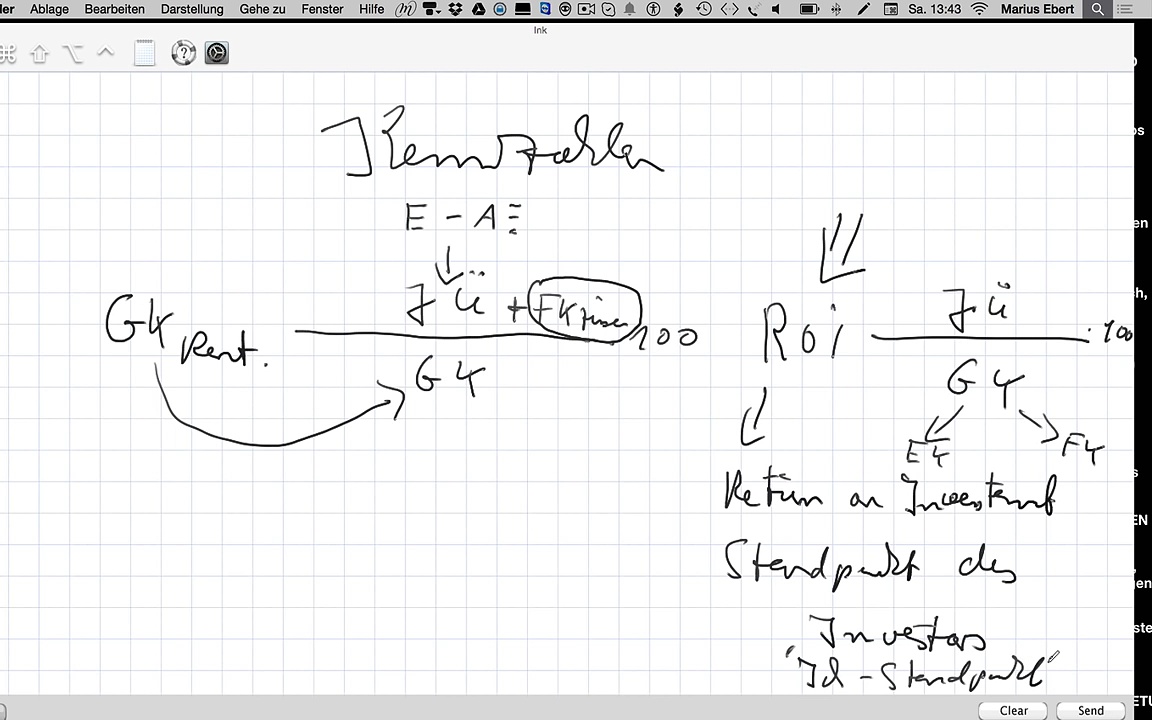 Ablage Bearbeiten Darstellung Gehe zu Fenster Hilfe Sa. 13:43 Marius Ebert
Ink
Kennzahlen
E - A
GK Rent. JÜ + FKzinsen 100
GK
RoI JÜ · 100
GK
EK FK
Return on Investment
Standpunkt des
Investors
"Ich - Standpunkt"
Clear Send